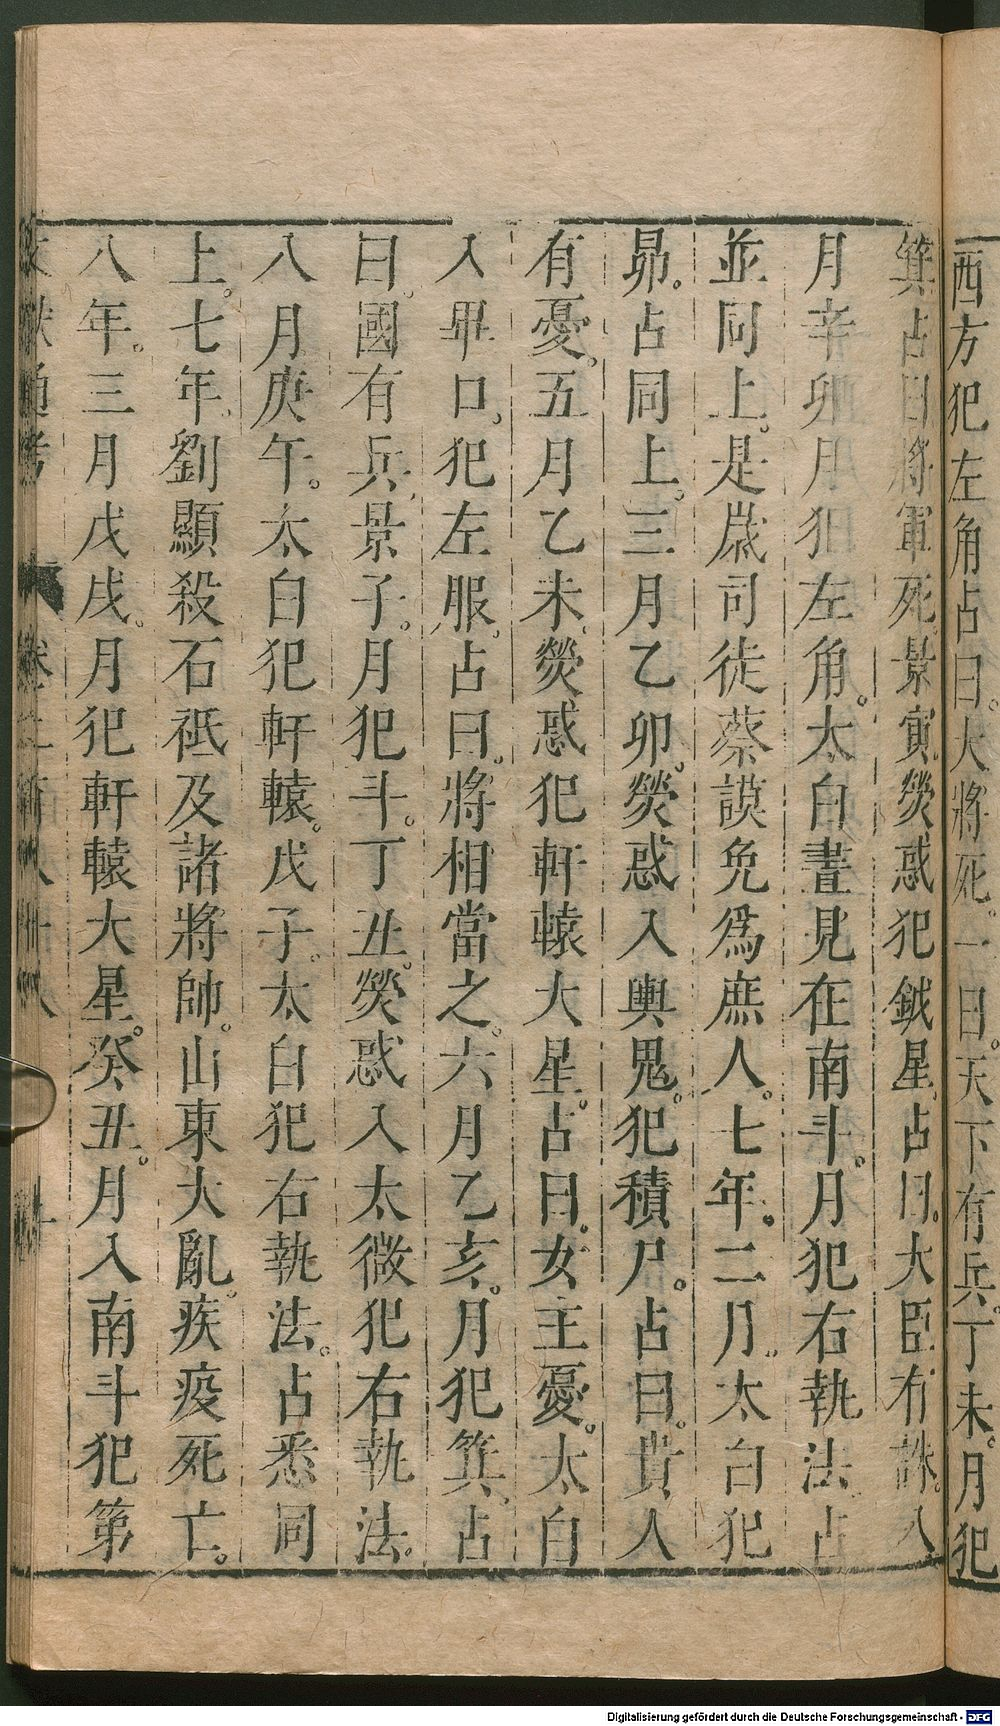 西方犯左角占曰。大將死。一曰。天下有兵。丁未。月犯
箕占曰將軍死。景寅熒惑犯鉞星。占曰。大臣有誅。八
月辛卯月犯左角。太白晝見在南斗。月犯右執法占
並同上。是歲司徒蔡謨免爲庶人。七年。二月。太白犯
昴。占同上。三月乙卯。熒惑入輿鬼。犯積尸。占曰。貴人
有憂。五月乙未。熒惑犯軒轅大星。占曰。女主憂。太白
入畢口。犯左服。占曰。將相當之。六月乙亥。月犯箕。占
曰。國有兵。景子。月犯斗。丁丑。熒惑入太微犯右執法。
八月庚午。太白犯軒轅。戊子。太白犯右執法。占悉同
上。七年。劉顯殺石祗及諸將帥。山東大亂。疾疫死亡。
八年。三月戊戌。月犯軒轅大星。癸丑。月入南斗犯第
文獻通考 卷二百八十八 十
Digitalisierung gefördert durch die Deutsche Forschungsgemeinschaft - DFG